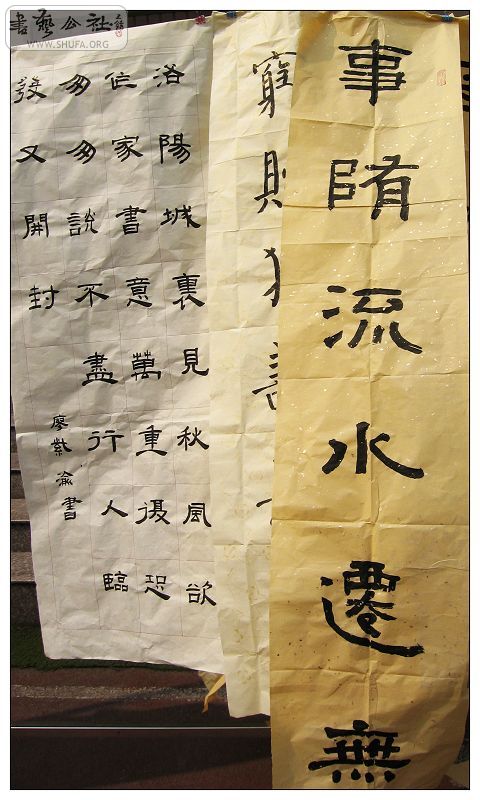 書藝公社
WWW.SHUFA.ORG
事陏流水遷無
窮則獨善
洛陽城裏見秋風欲
作家書意萬重復恐
匆匆說不盡行人臨
發又開封
廖紫渝書